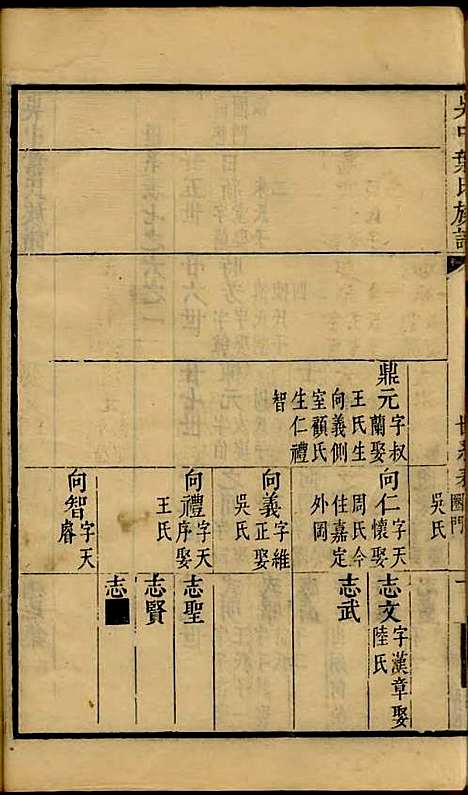 吳中葉氏族譜
世系表 圌門
吳氏
鼎元字叔
蘭娶
王氏生
向義側
室顧氏
生仁禮
智
向仁字天
懷娶
周氏今
住嘉定
外岡
向義字維
正娶
吳氏
向禮字天
序娶
王氏
向智字天
睿
志文字漢章娶
陸氏
志武
志聖
志賢
志